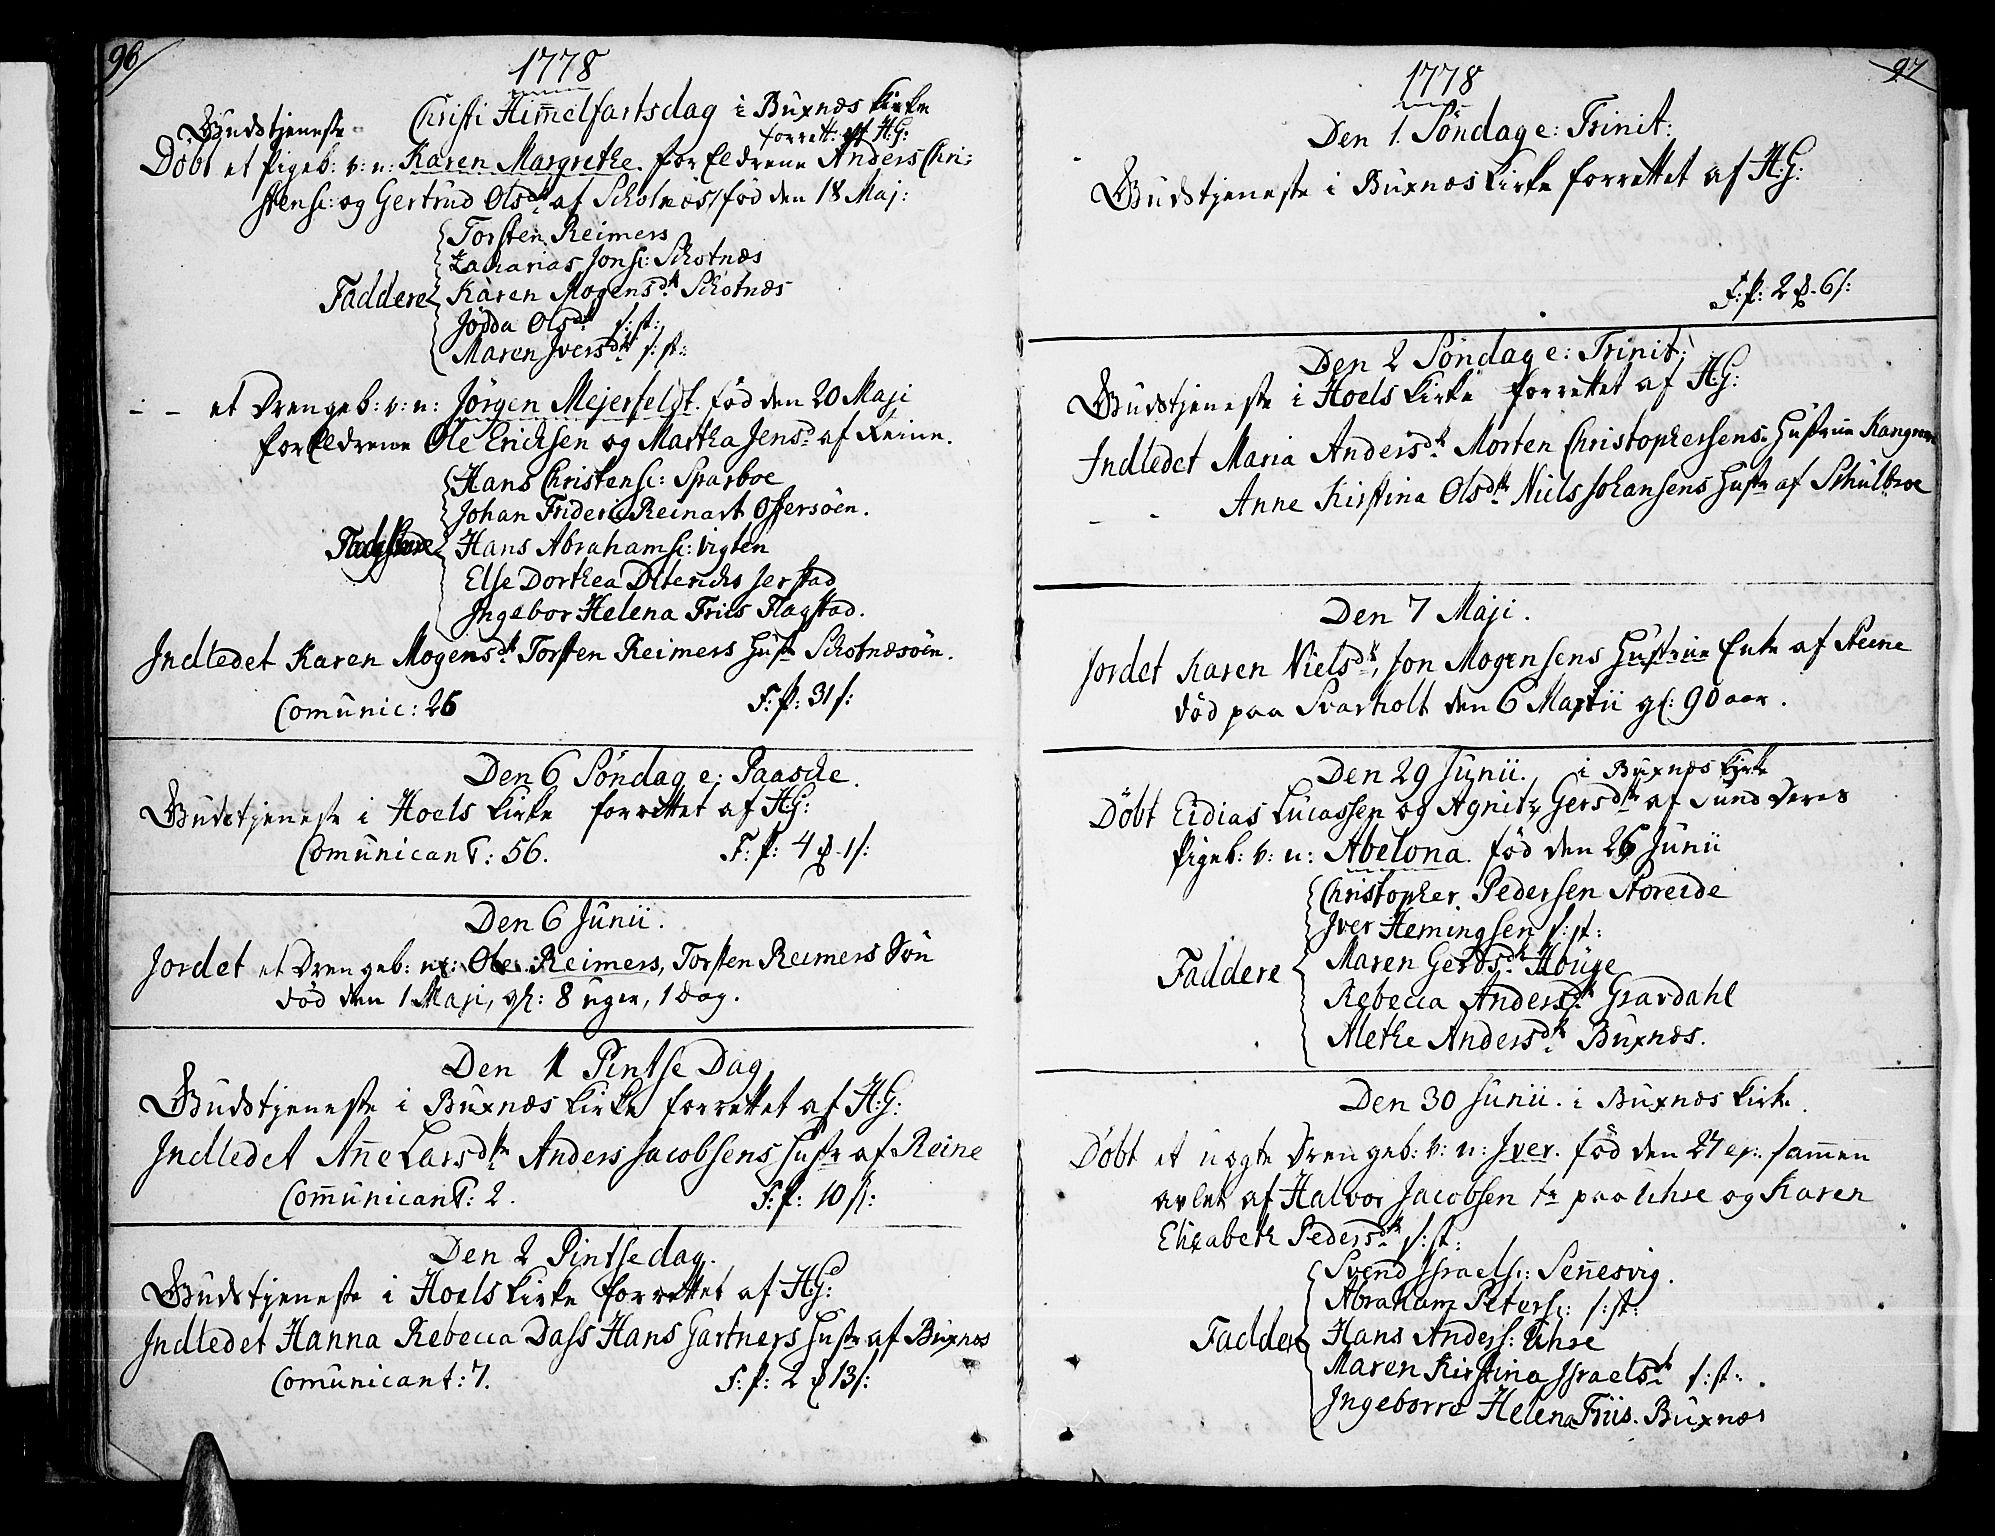 96
1778
Christi Him̄elfartsdag i Buxnæs kirke
Gudstjeneste forrett: af H:G:
Döbt et Pigeb: v: n: Karen Margrethe. forEldrene Anders Chri:
stens: og Gertrud Olsdtr af Schotnæs, föd den 18 Maj:
Torsten Reimers
Zacharias Jons: Schotnæs
Faddere Karen Mogensdtr Schotnæs
Jödda Olsdtr s: st:
Maren Iversdtr s: st:
- - et Drengeb: v: n: Jörgen Mejerfeldt. föd den 20 Maji
forEldrene Ole Erichsen og Martha Jensd af Reine.
Hans Christens: Sparboe
Johan Frideric Reinart Offersöen.
Faddere Hans Abrahams: Vigten
Else Dorthea Diterichs Jerstad
Ingebor Helena Friis Flagstad.
Indledet Karen Mogensdtr Torsten Reimers Hustr Schotnæsöen.
Com̄unic: 26 F: P: 31 s:
Den 6 Söndag e: Paasche.
Gudstjeneste i Hoels kirke forrettet af H:G:
Com̄unicant: 56. F: P: 4 - 1 s:
Den 6 Junii.
Jordet et Drengeb: n: Ole Reimers, Torsten Reimers Sön
död den 1 Maji, gl: 8 uger, 1 Dag.
Den 1 Pintse Dag
Gudstjeneste i Buxnæs kirke forrettet af H:G:
Indledet An̄e Larsdtr Anders Jacobsens Hustr af Reine
Com̄unicant: 2. F: P: 10 s:
Den 2 Pintsedag.
Gudstjeneste i Hoels kirke forrettet af H:G:
Indledet Hanna Rebecca Dass Hans Gartners Hustr af Buxnæs
Com̄unicant: 7. F: P: 2 13 s:
97
1778
Den 1. Söndag e: Trinit:
Gudstjeneste i Buxnæs kirke forrettet af H:G:
F: P: 2 - 6 s:
Den 2 Söndag e: Trinit:
Gudstjeneste i Hoels kirke forrettet af H:G:
Indledet Maria Andersdtr Morten Christophersens Hustrue
- - Anne Kirstina Olsdtr Niels Johansens Hustr af Schulbroe
Den 7 Maji.
Jordet Karen Nielsdtr, Jon Mogensens Hustrue Enke af Reine
död paa Svarholt den 6 Martii gl: 90 aar.
Den 29 Junii. i Buxnæs kirke
Döbt Eidias Lucassen og Agnitz Gersdtr af Sund deres
Pigeb: v: n: Abelona. föd den 26 Junii
Christopher Pedersen Storeide
Iver Hemingsen s: st:
Faddere Maren Gerdsdtr Houge
Rebecca Andersdtr Gravdahl
Alethe Andersdtr Buxnæs.
Den 30 Junii. i Buxnæs kirke.
Döbt et uægte Drengeb: v: n: Iver. föd den 27 ej: sam̄en
avlet af Halvor Jacobsen tr paa Uhre og Karen
Elizabeth Pedersdtr s: st:
Svend Israels: Sen̄esvig.
Abraham Peters: s: st:
Faddere Hans Anders: Uhre
Maren Kirstina Israelsdtr s: st:.
Ingeborre Helena Friis. Buxnæs